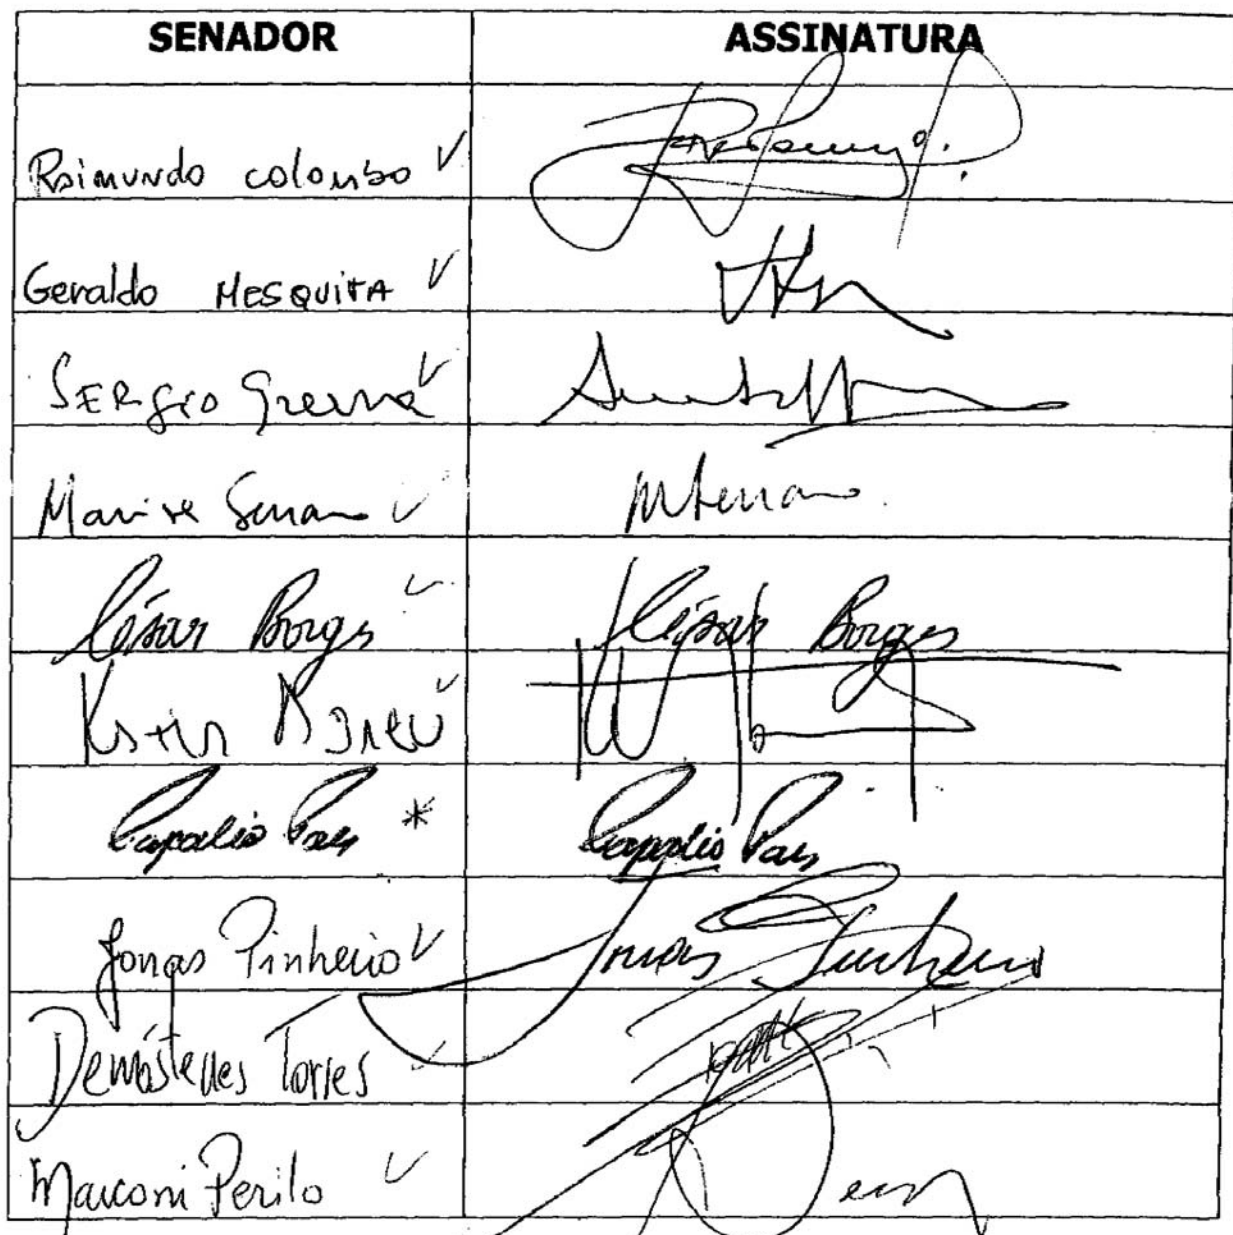 SENADOR ASSINATURA
Raimundo Colombo
Geraldo MESQUITA
SERgio Guerra
Marisa Serrano
César Borges César Borges
Kátia Abreu
Papaléo Paes Papaléo Paes
Jonas Pinheiro Jonas Pinheiro
Demóstenes Torres
Marconi Perilo